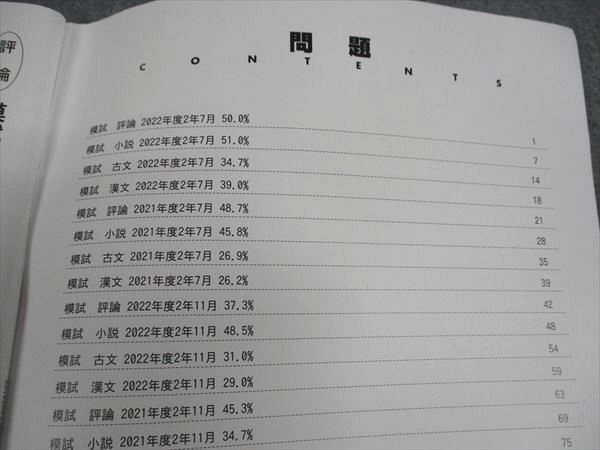 評論
問題
CONTENTS
模試 評論 2022年度2年7月 50.0% 1
模試 小説 2022年度2年7月 51.0% 7
模試 古文 2022年度2年7月 34.7% 14
模試 漢文 2022年度2年7月 39.0% 18
模試 評論 2021年度2年7月 48.7% 21
模試 小説 2021年度2年7月 45.8% 28
模試 古文 2021年度2年7月 26.9% 35
模試 漢文 2021年度2年7月 26.2% 39
模試 評論 2022年度2年11月 37.3% 42
模試 小説 2022年度2年11月 48.5% 48
模試 古文 2022年度2年11月 31.0% 54
模試 漢文 2022年度2年11月 29.0% 59
模試 評論 2021年度2年11月 45.3% 63
模試 小説 2021年度2年11月 34.7% 69
75